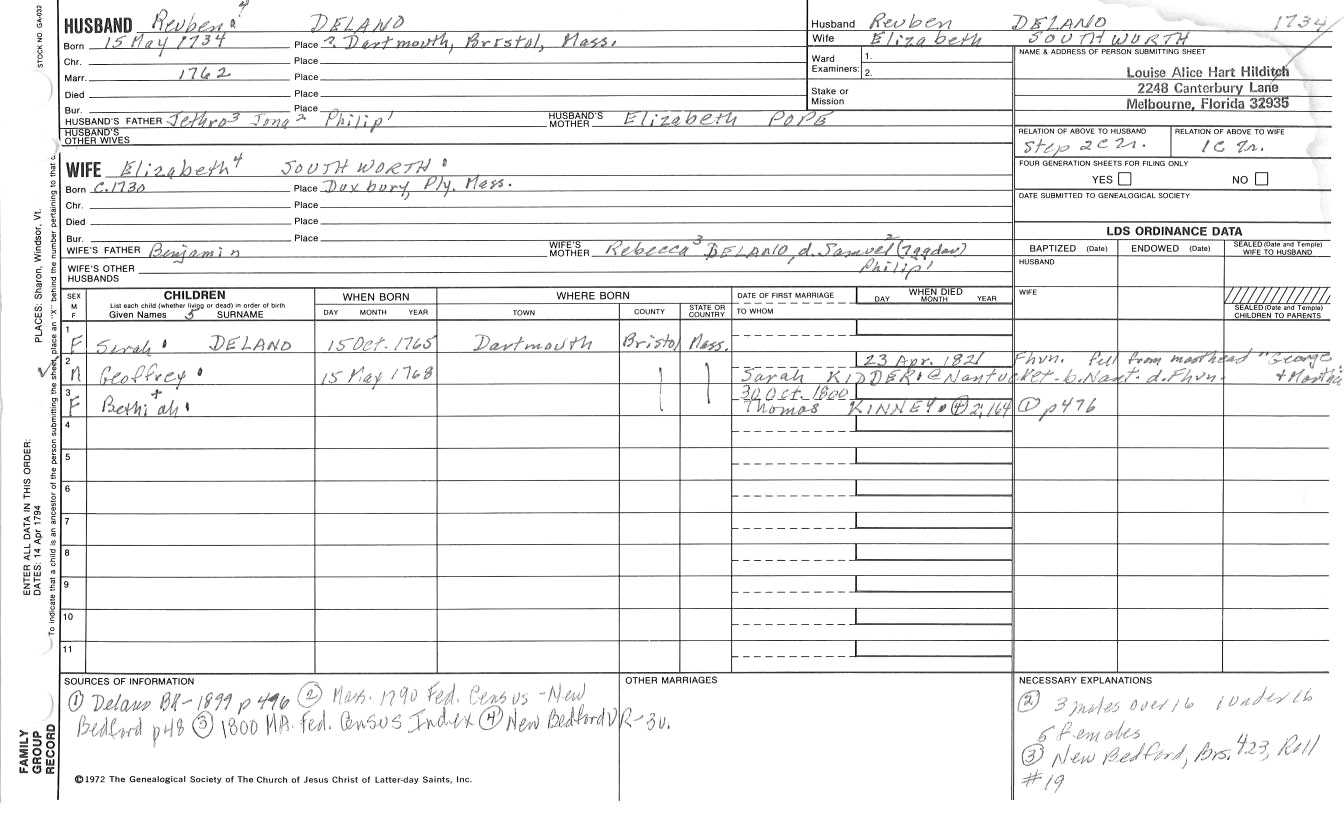 STOCK NO. GA-032
HUSBAND Reuben 4 DELANO
Born 15 May 1734 Place ? Dartmouth, Bristol, Mass.
Chr. Place
Marr. 1762 Place
Died Place
Bur. Place
HUSBAND'S FATHER Jethro3 Jona2 Philip1 HUSBAND'S MOTHER Elizabeth POPE
HUSBAND'S OTHER WIVES
Husband Reuben DELANO 1734
Wife Elizabeth SOUTHWORTH
Ward Examiners: 1. 2.
Stake or Mission
NAME & ADDRESS OF PERSON SUBMITTING SHEET
Louise Alice Hart Hilditch
2248 Canterbury Lane
Melbourne, Florida 32935
RELATION OF ABOVE TO HUSBAND RELATION OF ABOVE TO WIFE
Step 2C7r. 1C7r.
FOUR GENERATION SHEETS FOR FILING ONLY
YES NO
DATE SUBMITTED TO GENEALOGICAL SOCIETY
WIFE Elizabeth4 SOUTHWORTH
Born C.1730 Place Duxbury, Ply. Mass.
Chr. Place
Died Place
Bur. Place
WIFE'S FATHER Benjamin WIFE'S MOTHER Rebecca3 DELANO, d. Samuel2
Philip1
WIFE'S OTHER HUSBANDS
LDS ORDINANCE DATA
BAPTIZED (Date) ENDOWED (Date) SEALED (Date and Temple) WIFE TO HUSBAND
HUSBAND
WIFE
SEALED (Date and Temple) CHILDREN TO PARENTS
SEX M F CHILDREN WHEN BORN WHERE BORN DATE OF FIRST MARRIAGE WHEN DIED
List each child (whether living or dead) in order of birth
Given Names 5 SURNAME DAY MONTH YEAR TOWN COUNTY STATE OR COUNTRY TO WHOM DAY MONTH YEAR
1 F Sarah DELANO 15 Oct. 1765 Dartmouth Bristol Mass.
2 M Geoffrey 15 May 1768 23 Apr. 1821 Fhvn. fell from masthead "George
Sarah KIDDER @ Nantucket-b. Nant. d. Fhvn. + Martha
3 F Bethiah 30 Oct. 1800
Thomas KINNEY ④ 2;164 ① p476
4
5
6
7
8
9
10
11
SOURCES OF INFORMATION
① Delano BK-1899 p 496 ② Mass. 1790 Fed. Census - New
Bedford p48 ③ 1800 MA. Fed. Census Index ④ New Bedford VR-3v.
OTHER MARRIAGES
NECESSARY EXPLANATIONS
② 3 males over 16 1 under 16
5 females
③ New Bedford, Brs. 423, Roll
#19
©1972 The Genealogical Society of The Church of Jesus Christ of Latter-day Saints, Inc.
PLACES: Sharon, Windsor, Vt.
ENTER ALL DATA IN THIS ORDER:
DATES: 14 Apr 1794
To indicate that a child is an ancestor of the person submitting the sheet, place an "X" behind the number pertaining to that c
FAMILY
GROUP
RECORD